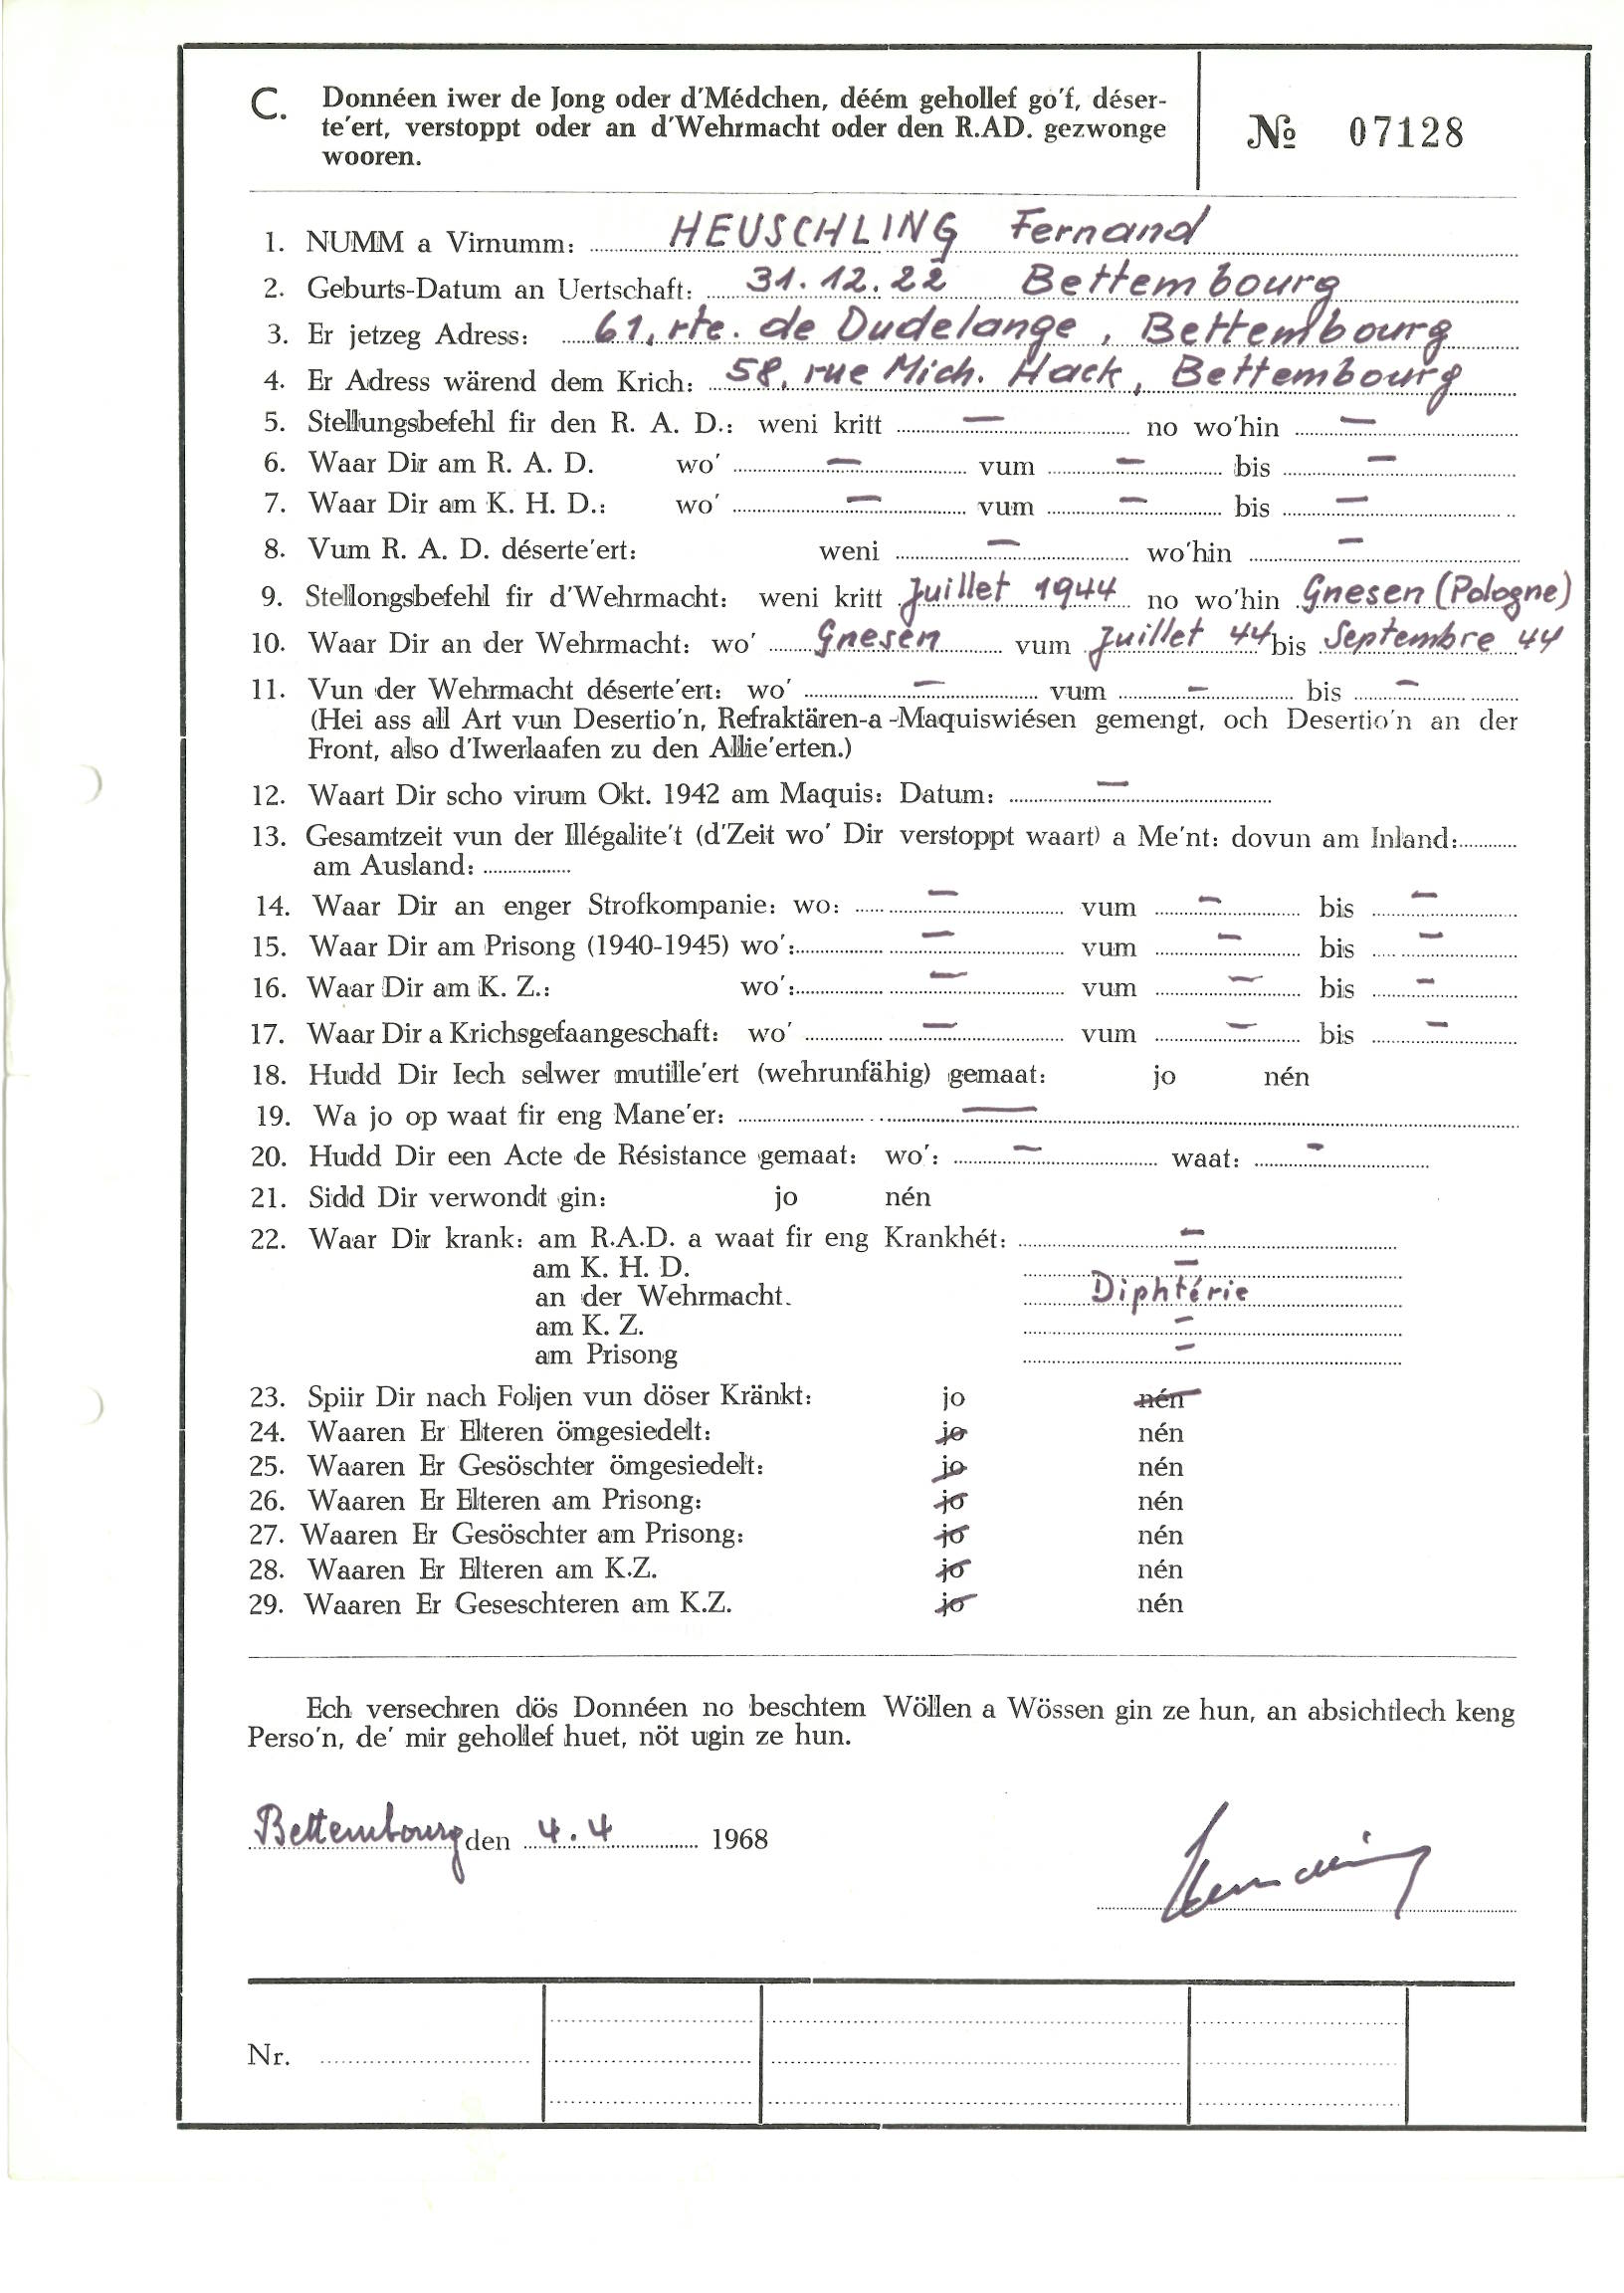 C. Donnéen iwer de Jong oder d'Médchen, déém gehollef go'f, déser-
te'ert, verstoppt oder an d'Wehrmacht oder den R.AD. gezwonge
wooren.
№ 07128
1. NUMM a Virnumm: HEUSCHLING Fernand
2. Geburts-Datum an Uertschaft: 31.12.22 Bettembourg
3. Er jetzeg Adress: 61, rte. de Dudelange, Bettembourg
4. Er Adress wärend dem Krich: 58, rue Mich. Hack, Bettembourg
5. Stellungsbefehl fir den R. A. D.: weni kritt — no wo'hin —
6. Waar Dir am R. A. D. wo' — vum — bis —
7. Waar Dir am K. H. D.: wo' — vum — bis —
8. Vum R. A. D. déserte'ert: weni — wo'hin —
9. Stellongsbefehl fir d'Wehrmacht: weni kritt Juillet 1944 no wo'hin Gnesen (Pologne)
10. Waar Dir an der Wehrmacht: wo' Gnesen vum Juillet 44 bis Septembre 44
11. Vun der Wehrmacht déserte'ert: wo' — vum — bis —
(Hei ass all Art vun Desertio'n, Refraktären-a-Maquiswiésen gemengt, och Desertio'n an der
Front, also d'Iwerlaafen zu den Allie'erten.)
12. Waart Dir scho virum Okt. 1942 am Maquis: Datum: —
13. Gesamtzeit vun der Illégalite't (d'Zeit wo' Dir verstoppt waart) a Me'nt: dovun am Inland:
am Ausland:
14. Waar Dir an enger Strofkompanie: wo: — vum — bis —
15. Waar Dir am Prisong (1940-1945) wo': — vum — bis —
16. Waar Dir am K. Z.: wo': — vum — bis —
17. Waar Dir a Krichsgefaangeschaft: wo' — vum — bis —
18. Hudd Dir Iech selwer mutille'ert (wehrunfähig) gemaat: jo nén
19. Wa jo op waat fir eng Mane'er: —
20. Hudd Dir een Acte de Résistance gemaat: wo': — waat: -
21. Sidd Dir verwondt gin: jo nén
22. Waar Dir krank: am R.A.D. a waat fir eng Krankhét: —
am K. H. D. —
an der Wehrmacht. Diphtérie
am K. Z. —
am Prisong —
23. Spiir Dir nach Foljen vun döser Kränkt: jo nén
24. Waaren Er Elteren ömgesiedelt: jo nén
25. Waaren Er Gesöschter ömgesiedelt: jo nén
26. Waaren Er Elteren am Prisong: jo nén
27. Waaren Er Gesöschter am Prisong: jo nén
28. Waaren Er Elteren am K.Z. jo nén
29. Waaren Er Geseschteren am K.Z. jo nén
Ech versechren dös Donnéen no beschtem Wöllen a Wössen gin ze hun, an absichtlech keng
Perso'n, de' mir gehollef huet, nöt ugin ze hun.
Bettembourg den 4.4 1968
Nr.